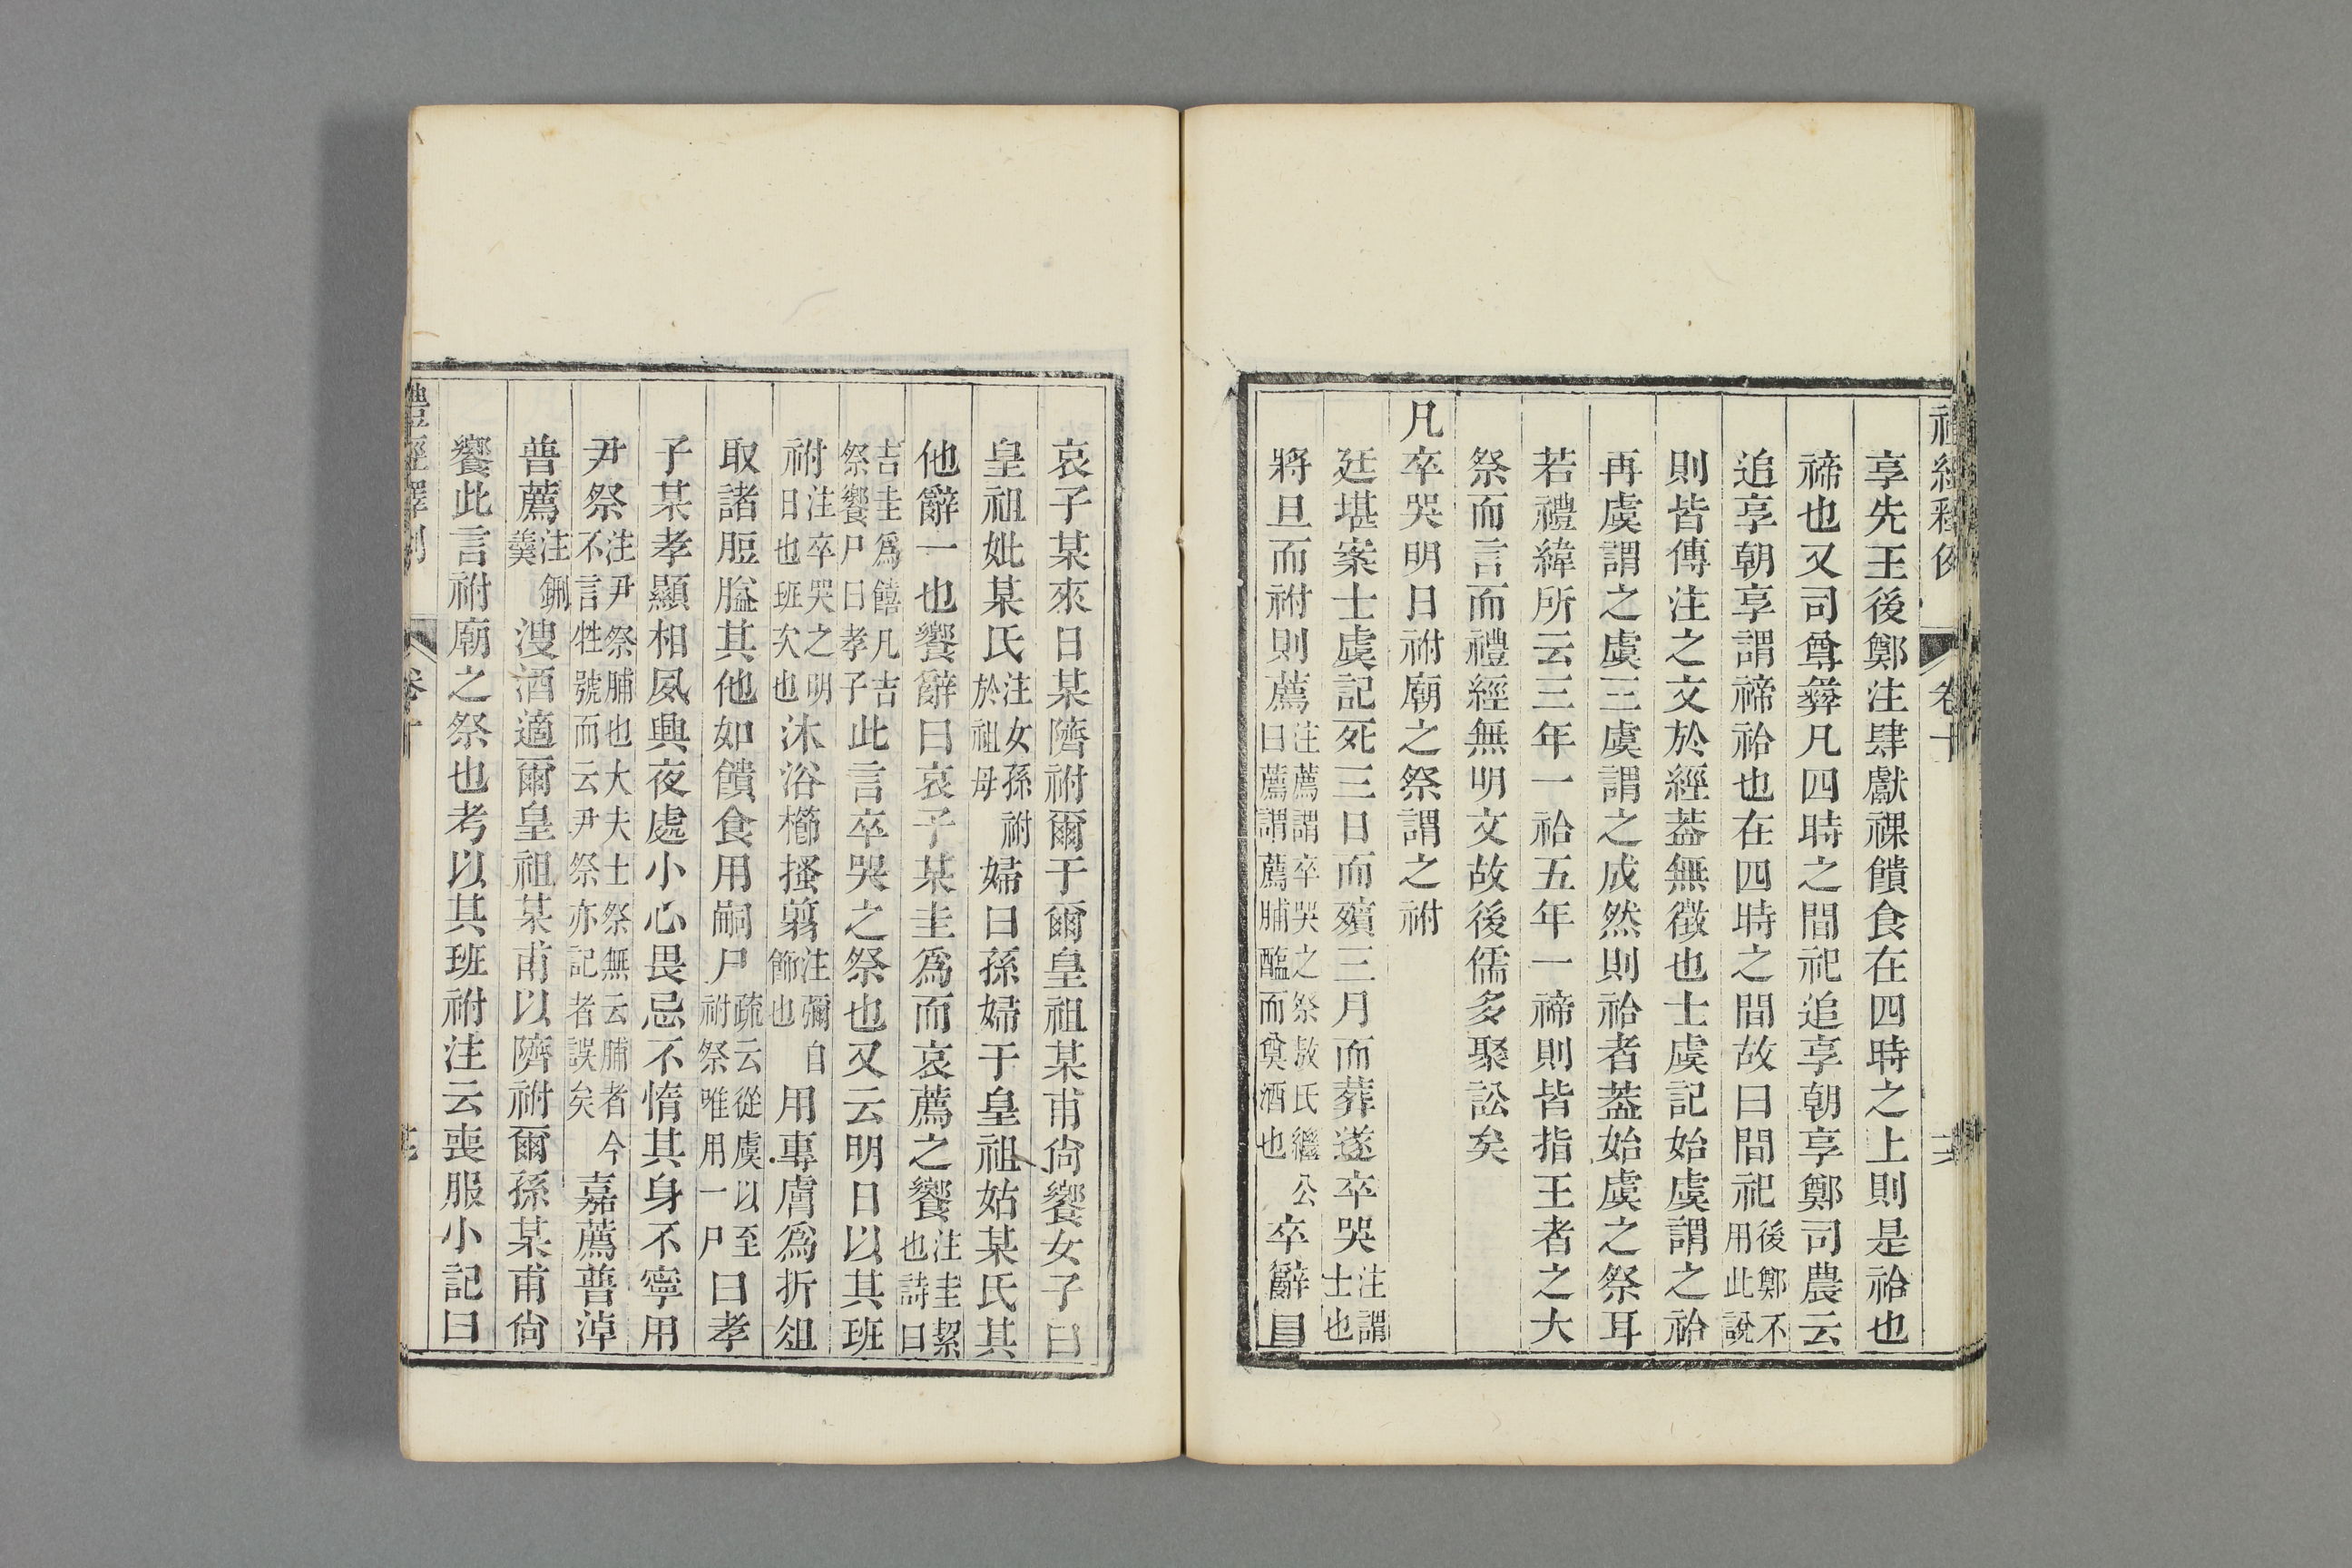 禮經釋例 卷十
享先王後鄭注肆獻祼饋食在四時之上則是祫也
禘也又司尊彝凡四時之間祀追享朝享鄭司農云
追享朝享謂禘祫也在四時之間故曰間祀後鄭不用此說
則皆傳注之文於經葢無徵也士虞記始虞謂之祫
再虞謂之虞三虞謂之成然則祫者葢始虞之祭耳
若禮緯所云三年一祫五年一禘則皆指王者之大
祭而言而禮經無明文故後儒多聚訟矣
凡卒哭明日祔廟之祭謂之祔
廷堪案士虞記死三日而殯三月而葬遂卒哭注謂士也
將旦而祔則薦注薦謂卒哭之祭敖氏繼公曰薦謂薦脯醢而奠酒也卒辭曰
哀子某來日某隮祔爾于爾皇祖某甫尙饗女子曰
皇祖妣某氏注女孫祔於祖母婦曰孫婦于皇祖姑某氏其
他辭一也饗辭曰哀子某圭爲而哀薦之饗注圭絜也詩曰
吉圭爲饎凡吉祭饗尸曰孝子此言卒哭之祭也又云明日以其班
祔注卒哭之明日也班次也沐浴櫛搔翦注彌自飾也用專膚爲折俎
取諸脰膉其他如饋食用嗣尸疏云從虞以至祔祭唯用一尸曰孝
子某孝顯相夙興夜處小心畏忌不惰其身不寧用
尹祭注尹祭脯也大夫士祭無云脯者今不言牲號而云尹祭亦記者誤矣嘉薦普淖
普薦注鉶羹溲酒適爾皇祖某甫以隮祔爾孫某甫尙
饗此言祔廟之祭也考以其班祔注云喪服小記曰
禮經釋例 卷十